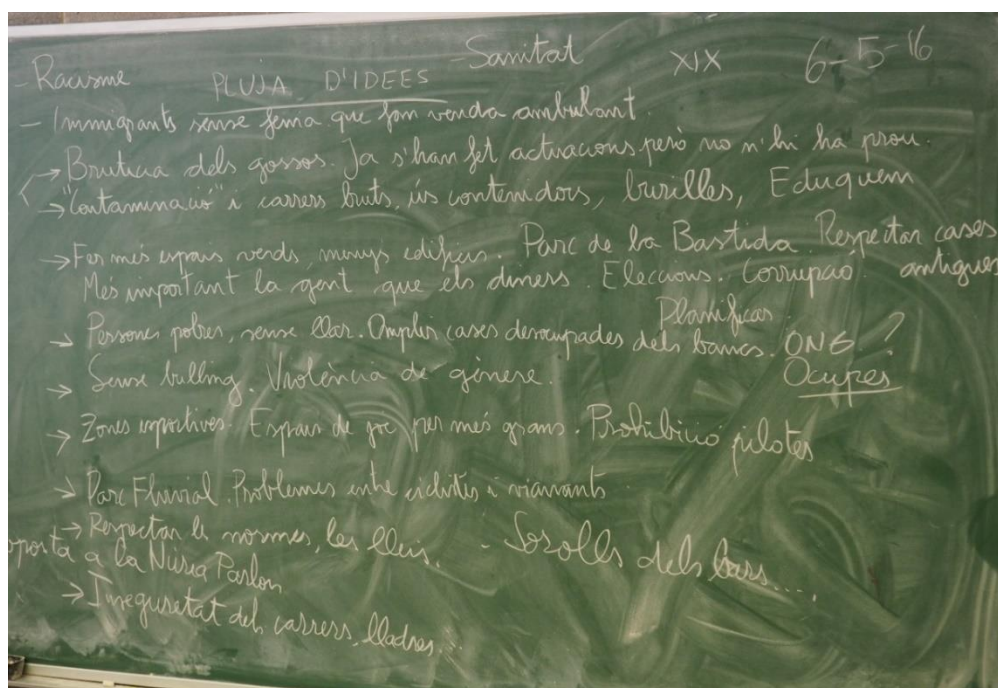 - Racisme PLUJA D'IDEES - Sanitat XIX 6-5-16
- Immigrants sense feina que fan venda ambulant.
→ Brutícia dels gossos. Ja s'han fet actuacions però no n'hi ha prou.
→ "Contaminació" i carrers bruts, ús contenidors, burilles, Eduquem
→ Fer més espais verds, menys edificis. Parc de la Bastida. Respectar cases antigues
Més important la gent que els diners. Eleccions. Corrupció
Planificar
→ Persones pobres, sense llar. Omplir cases desocupades dels bancs. ONG ?
→ Sense bulling. Violència de gènere. Ocupes
→ Zones esportives. Espais de joc per més grans. Prohibició pilotes
→ Parc Fluvial. Problemes entre ciclistes i vianants.
→ Respectar les normes, les lleis. - Sorolls dels bars....
porta a la Núria Parlon
→ Inseguretat dels carrers, lladres...